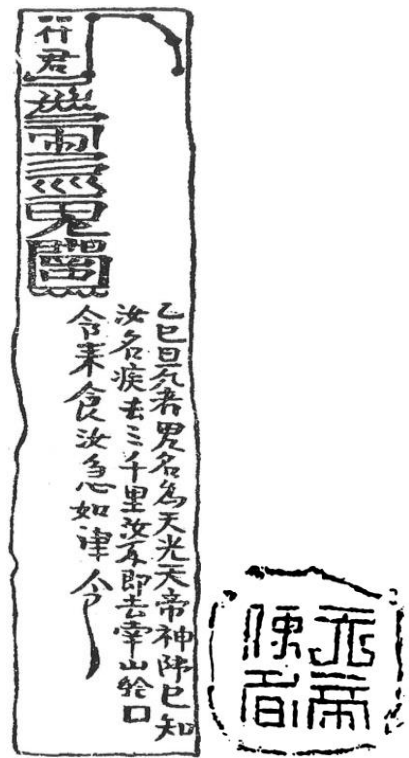 符君
乙巳日死者鬼名為天光天帝神師已知
汝名疾去三千里汝不即去南山給口
令來食汝急如律令
天帝
使者